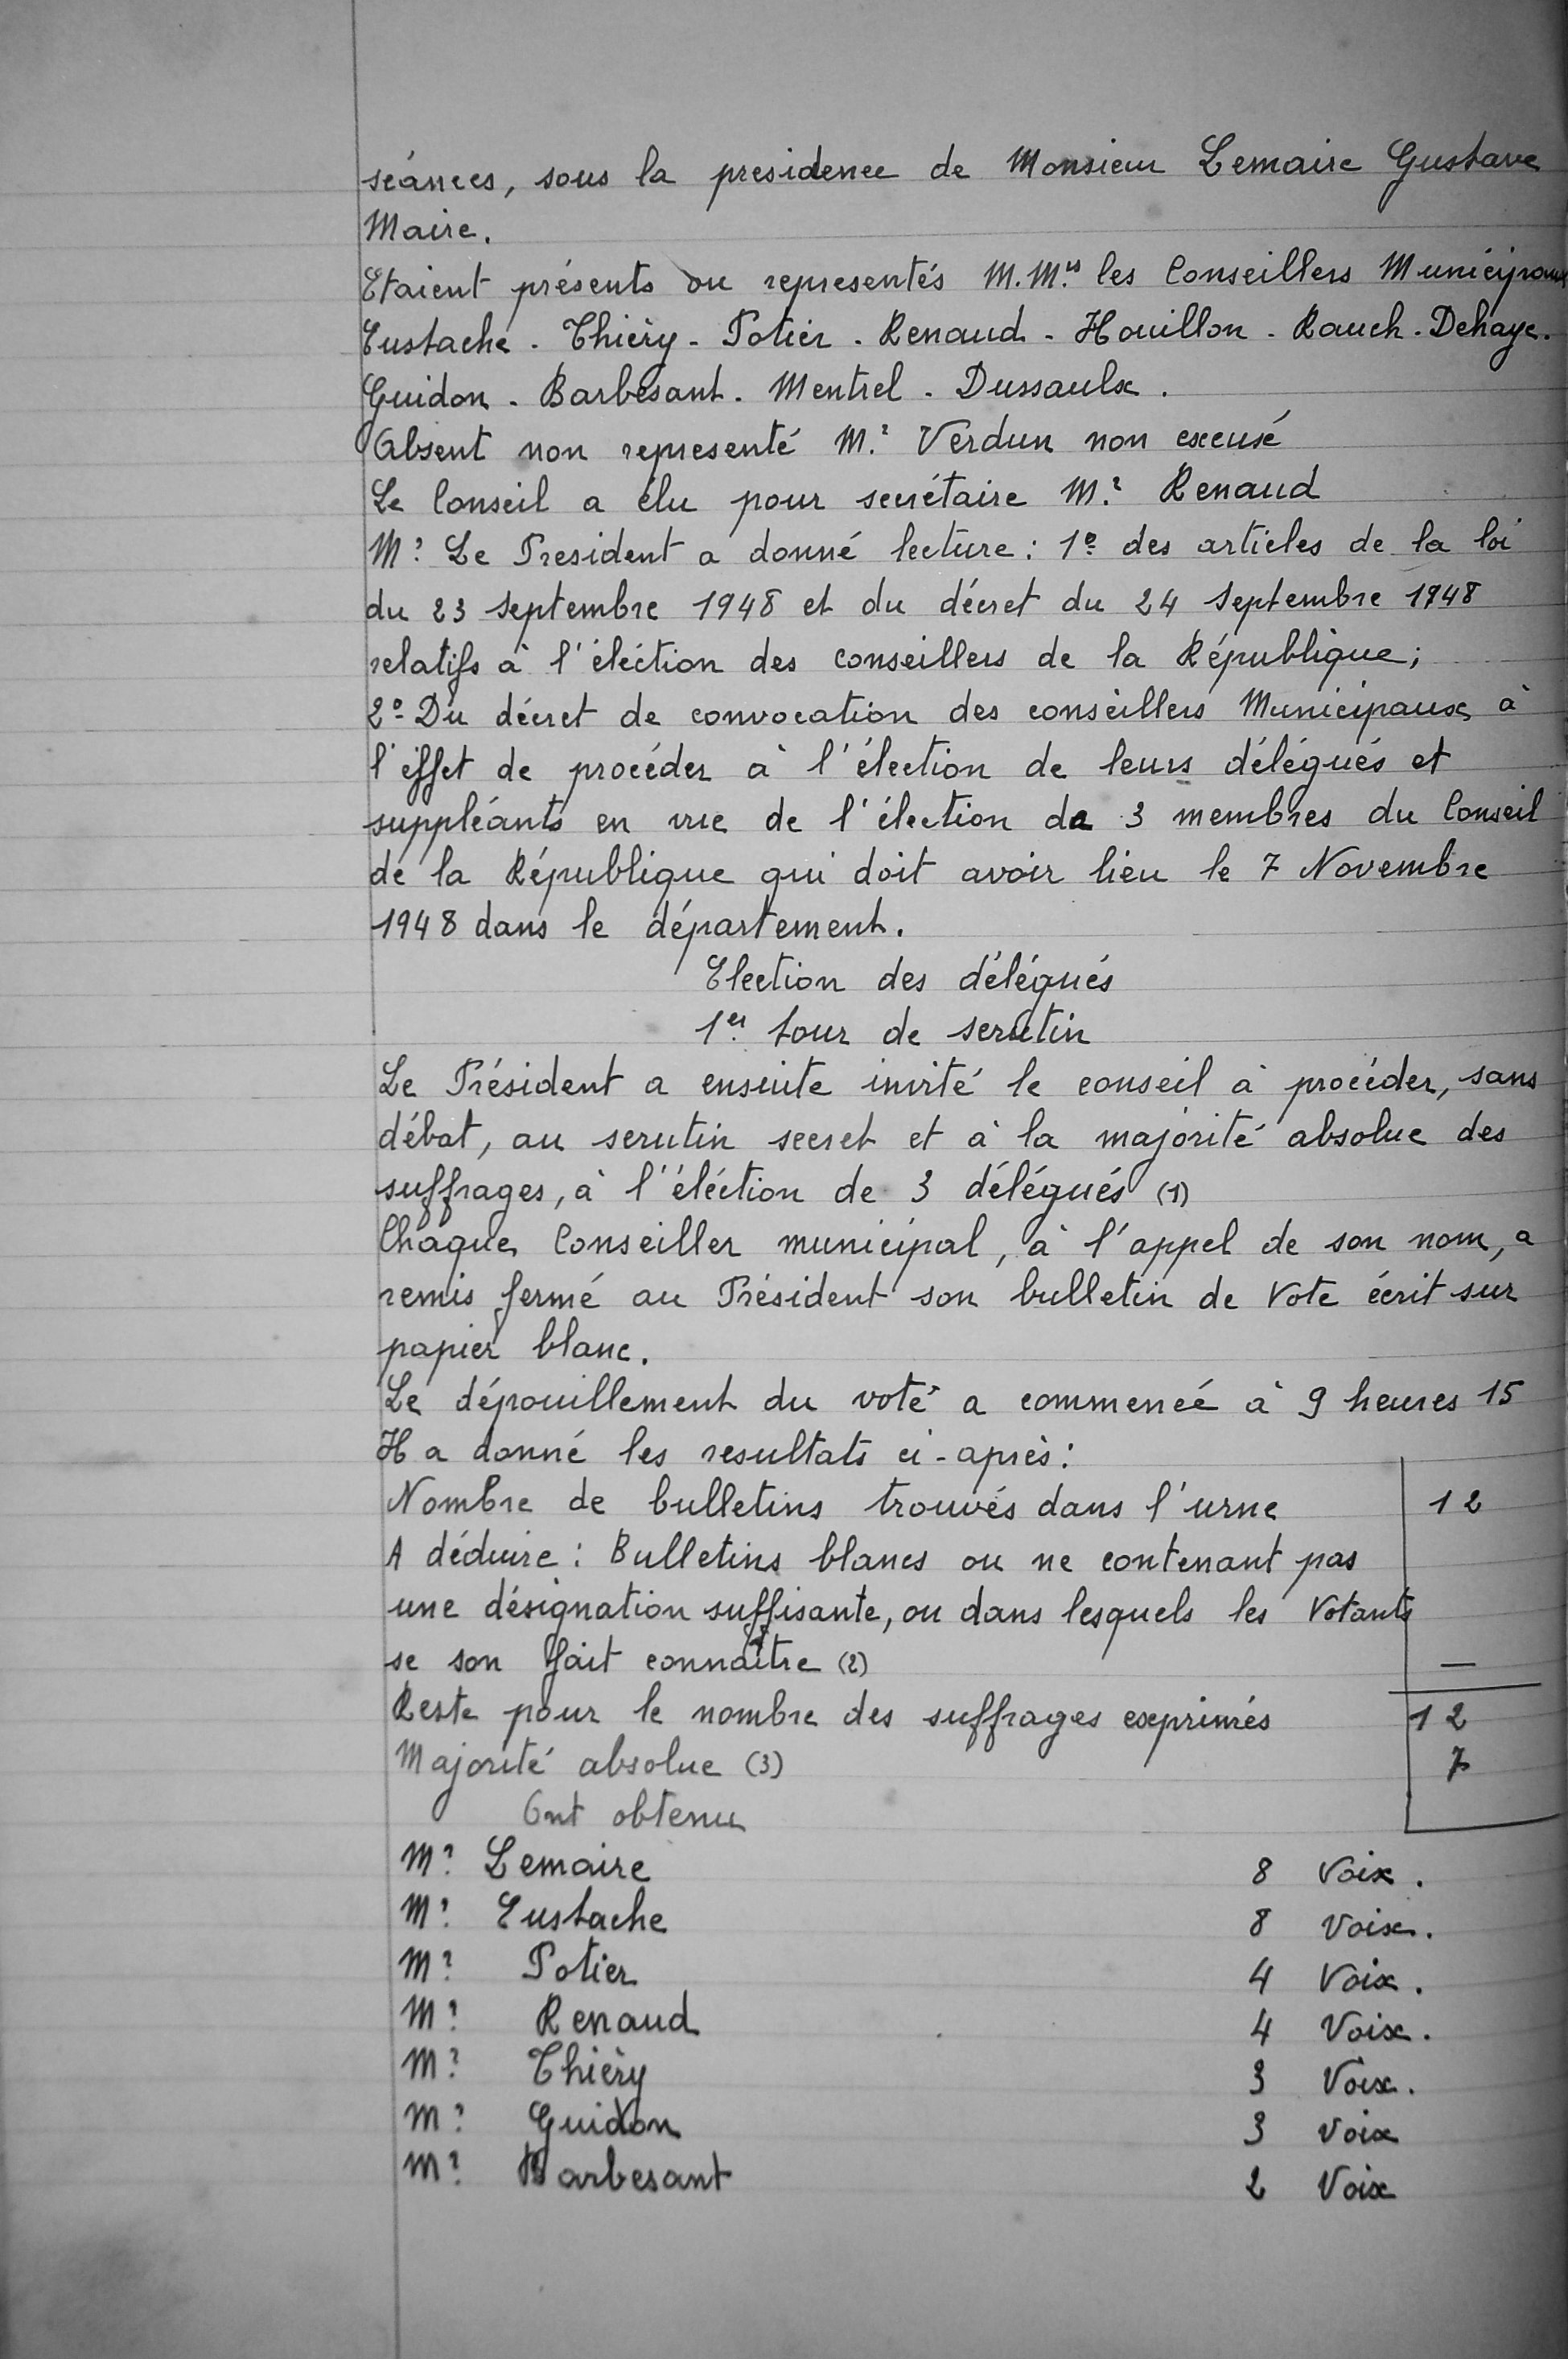 séances, sous la presidence de Monsieur Lemaire Gustave
Maire.
Etaient présents ou representés M.Mrs les Conseillers Municipaux
Eustache - Thiéry - Potier - Renaud - Houillon - Rauch - Dehaye.
Guidon - Barbesant - Mentrel - Dussaulx.
Absent non representé Mr Verdun non excusé
Le Conseil a élu pour secrétaire Mr Renaud
Mr Le President a donné lecture : 1º des articles de la loi
du 23 septembre 1948 et du décret du 24 septembre 1948
relatifs à l'élection des conseillers de la République ;
2º Du décret de convocation des conseillers Municipaux à
l'effet de procéder à l'élection de leurs délégués et
suppléants en vue de l'élection de 3 membres du Conseil
de la République qui doit avoir lieu le 7 Novembre
1948 dans le département.
Election des délégués
1er tour de scrutin
Le Président a ensuite invité le conseil à procéder, sans
débat, au scrutin secret et à la majorité absolue des
suffrages, à l'élection de 3 délégués (1)
Chaque Conseiller municipal, à l'appel de son nom, a
remis fermé au Président son bulletin de Vote écrit sur
papier blanc.
Le dépouillement du voté a commencé à 9 heures 15
Il a donné les resultats ci-après :
Nombre de bulletins trouvés dans l'urne 12
A déduire : Bulletins blancs ou ne contenant pas
une désignation suffisante, ou dans lesquels les Votants
se son fait connaître (2) —
Reste pour le nombre des suffrages exprimés 12
Majorité absolue (3) 7
Ont obtenu
Mr Lemaire 8 Voix.
Mr Eustache 8 Voix.
Mr Potier 4 Voix.
Mr Renaud 4 Voix.
Mr Thiéry 3 Voix.
Mr Guidon 3 Voix
Mr Barbesant 2 Voix